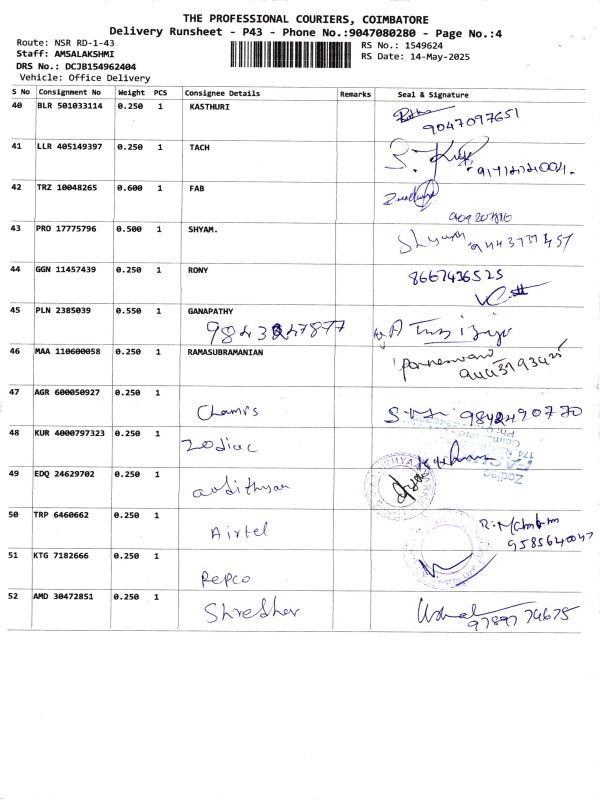 THE PROFESSIONAL COURIERS, COIMBATORE
Delivery Runsheet - P43 - Phone No.:9047080280 - Page No.:4
Route: NSR RD-1-43
Staff: AMSALAKSHMI
DRS No.: DCJB154962404
Vehicle: Office Delivery
RS No.: 1549624
RS Date: 14-May-2025
S No Consignment No Weight PCS Consignee Details Remarks Seal & Signature
40 BLR 501033114 0.250 1 KASTHURI
9047097651
41 LLR 405149397 0.250 1 TACH
42 TRZ 10048265 0.600 1 FAB
43 PRO 17775796 0.500 1 SHYAM.
44 GGN 11457439 0.250 1 RONY 8667436525
45 PLN 2385039 0.550 1 GANAPATHY
46 MAA 110600058 0.250 1 RAMASUBRAMANIAN
47 AGR 600050927 0.250 1
Chamrs 9842490770
48 KUR 4000797323 0.250 1
Zodiac
49 EDQ 24629702 0.250 1
50 TRP 6460662 0.250 1
Airtel 9585640047
51 KTG 7182666 0.250 1
Repco
52 AMD 30472851 0.250 1
Shredher 9789774675